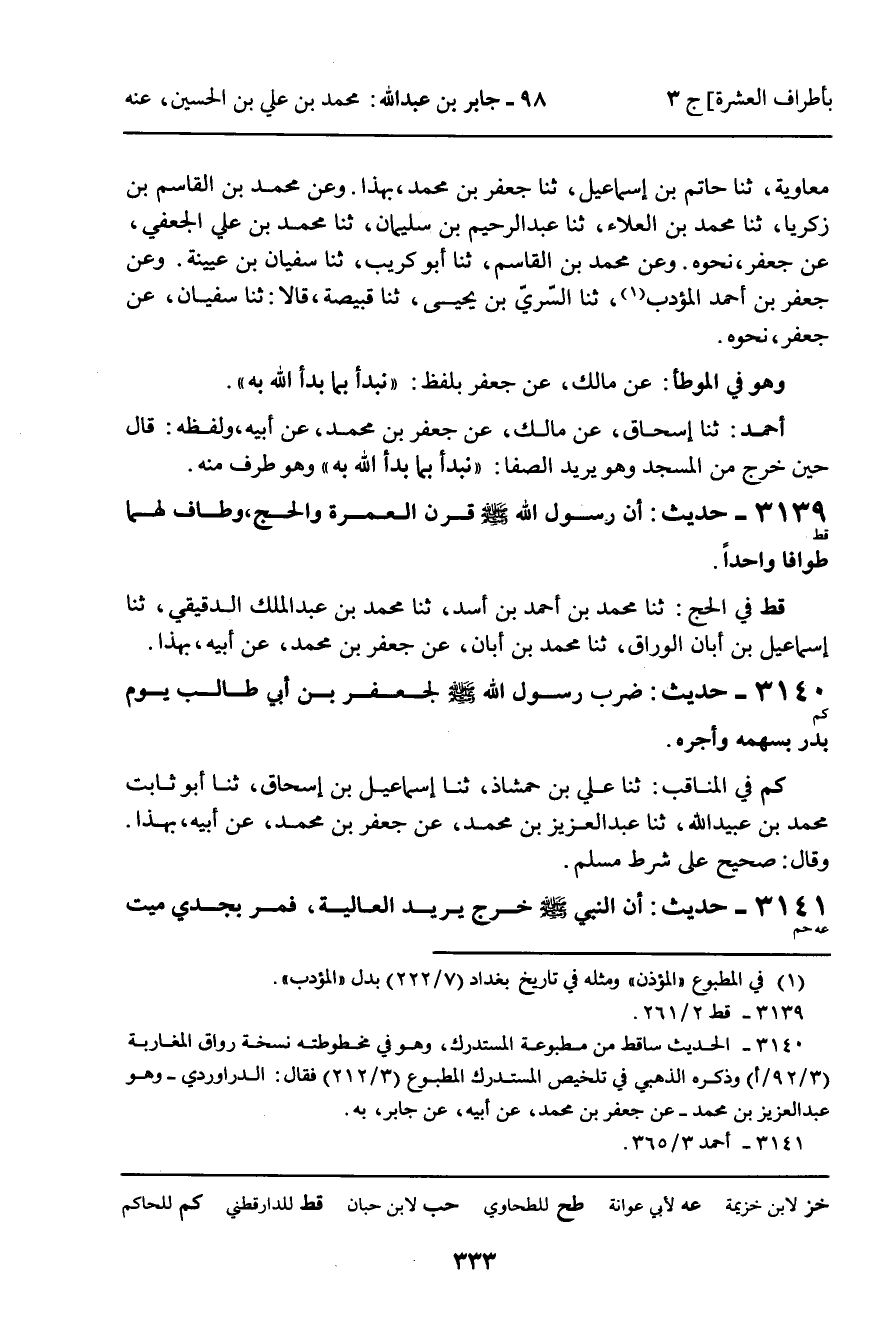 بأطراف العشرة] ج ٣ ٩٨ ـ جابر بن عبدالله: محمد بن علي بن الحسين، عنه
معاوية، ثنا حاتم بن إسماعيل، ثنا جعفر بن محمد، بهذا. وعن محمد بن القاسم بن
زكريا، ثنا محمد بن العلاء، ثنا عبدالرحيم بن سليمان، ثنا محمد بن علي الجعفي،
عن جعفر، نحوه. وعن محمد بن القاسم، ثنا أبو كريب، ثنا سفيان بن عيينة. وعن
جعفر بن أحمد المؤدب(١)، ثنا السّريّ بن يحيى، ثنا قبيصة، قالا: ثنا سفيان، عن
جعفر، نحوه.
وهو في الموطأ: عن مالك، عن جعفر بلفظ: «نبدأ بما بدأ الله به».
أحمد: ثنا إسحاق، عن مالك، عن جعفر بن محمد، عن أبيه، ولفظه: قال
حين خرج من المسجد وهو يريد الصفا: «نبدأ بما بدأ الله به» وهو طرف منه.
٣١٣٩ ـ حديث: أن رسول الله ﷺ قرن العمرة والحج، وطاف لهما
قط
طوافا واحداً.
قط في الحج: ثنا محمد بن أحمد بن أسد، ثنا محمد بن عبدالملك الدقيقي، ثنا
إسماعيل بن أبان الوراق، ثنا محمد بن أبان، عن جعفر بن محمد، عن أبيه، بهذا.
٣١٤٠ ـ حديث: ضرب رسول الله ﷺ لجعفر بن أبي طالب يوم
كم
بدر بسهمه وأجره.
كم في المناقب: ثنا علي بن حمشاذ، ثنا إسماعيل بن إسحاق، ثنا أبو ثابت
محمد بن عبيدالله، ثنا عبدالعزيز بن محمد، عن جعفر بن محمد، عن أبيه، بهذا.
وقال: صحيح على شرط مسلم.
٣١٤١ ـ حديث: أن النبي ﷺ خرج يريد العالية، فمر بجدي ميت
عه حم
(١) في المطبوع «المؤذن» ومثله في تاريخ بغداد (٢٢٢/٧) بدل «المؤدب».
٣١٣٩ ـ قط ٢٦١/٢.
٣١٤٠ ـ الحديث ساقط من مطبوعة المستدرك، وهو في مخطوطته نسخة رواق المغاربة
(٩٢/٣/أ) وذكره الذهبي في تلخيص المستدرك المطبوع (٢١٢/٣) فقال: الدراوردي ـ وهو
عبدالعزيز بن محمد ـ عن جعفر بن محمد، عن أبيه، عن جابر، به.
٣١٤١ ـ أحمد ٣٦٥/٣.
خز لابن خزيمة عه لأبي عوانة طح للطحاوي حب لابن حبان قط للدارقطني كم للحاكم
٣٣٣